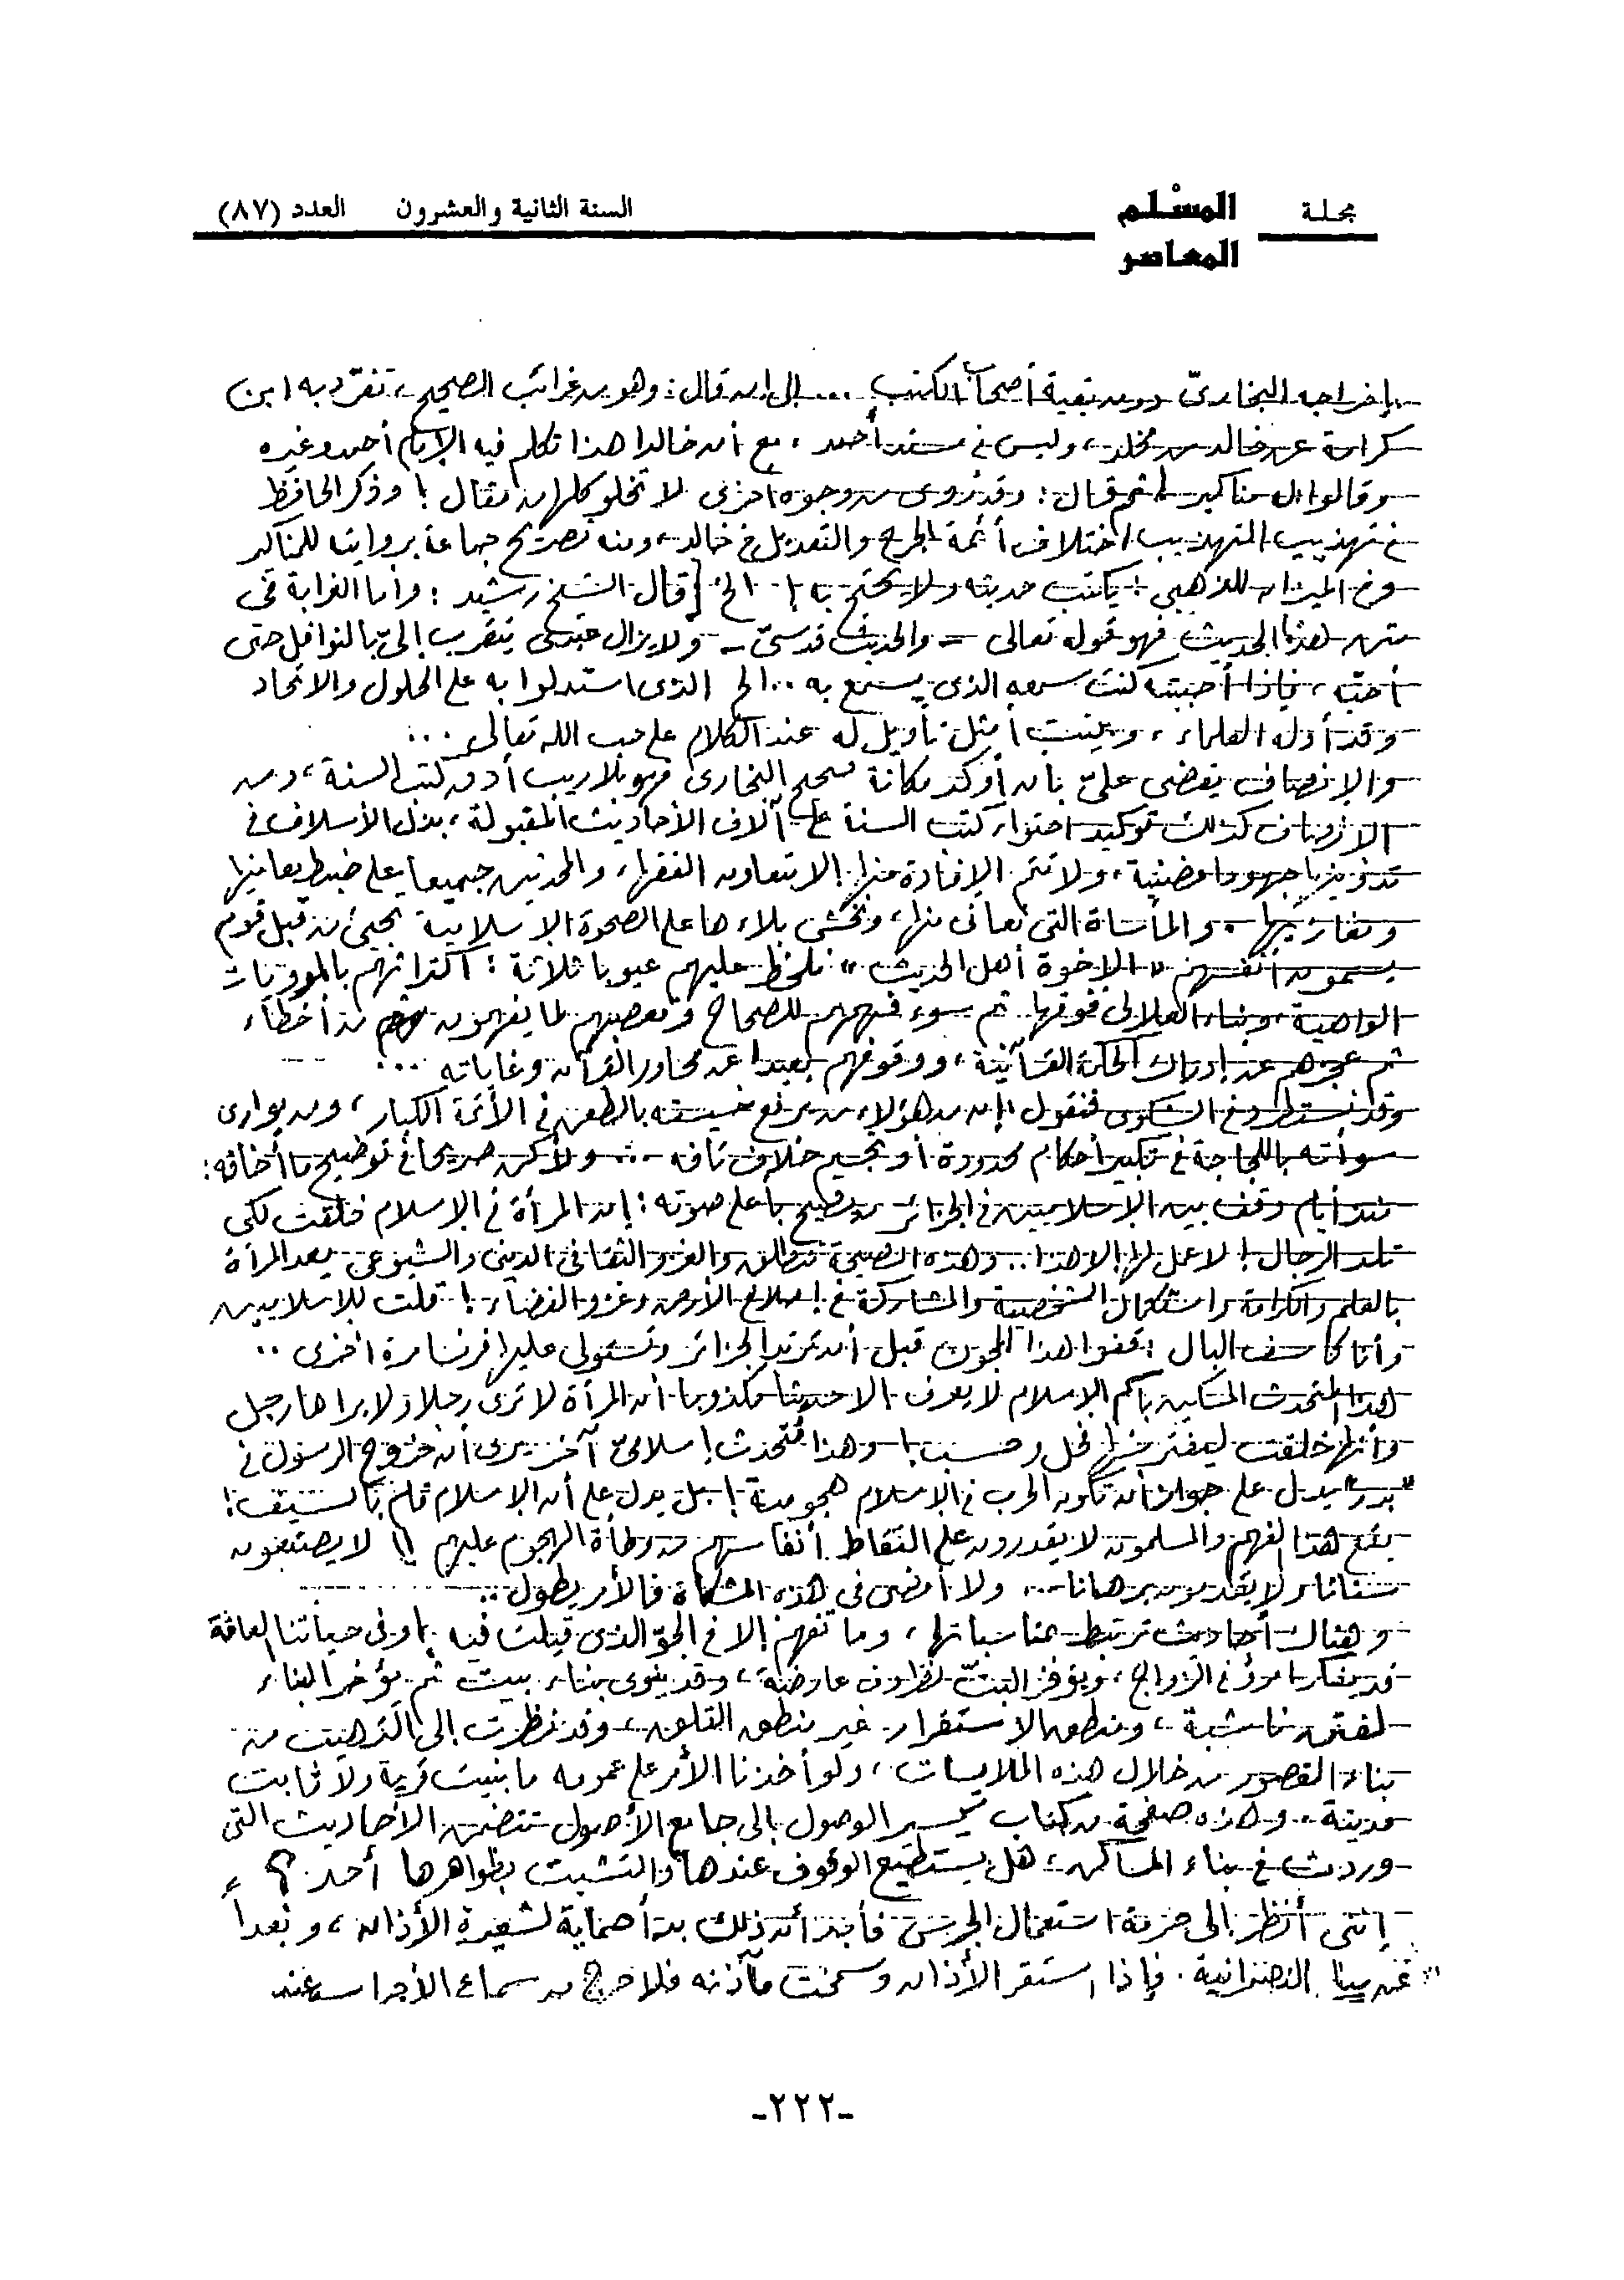 مجلة المسْلم المعاصر السنة الثانية والعشرون العدد (٨٧)
بإخراجه البخارىّ دون بقية أصحاب الكتب ... إلى أن قال: وهو من غرائب الصحيح، تفرّد به ابن
كرامة عن خالد بن مخلد، وليس فى مسند أحمد، مع أن خالدا هذا تكلم فيه الإمام أحمد وغيره
وقالوا له مناكير! ثم قال: وقد روى من وجوه أخرى لا تخلو كلها من مقال! وذكر الحافظ
فى تهذيب التهذيب اختلاف أئمة الجرح والتعديل فى خالد، ومنه تصريح جماعة بروايته للمناكير
وفى الميزان للذهبى: يكتب حديثه ولا يحتج به! الخ [قال الشيخ رشيد: وأما الغرابة فى
متن هذا الحديث فهو قوله تعالى = والحديث قدسىّ - ولا يزال عبدى يتقرب إلىّ بالنوافل حتى
أحبّه، فإذا أحببته كنت سمعه الذى يسمع به ..الخ الذى استدلوا به على الحلول والاتحاد
وقد أوله العلماء، وبينت أمثل تأويل له عند الكلام على حب الله تعالى ...
والإنصاف يقضى علىّ بأن أوكد مكانة صحيح البخارى فهو بلا ريب أدق كتب السنة، ومن
الإنصاف كذلك توكيد احتواء كتب السنة على آلاف الأحاديث المقبولة، بذل الأسلاف فى
تدوينها جهودا مضنية، ولا تتم الإفادة منها إلا بتعاون الفقهاء والمحدثين جميعا على ضبط معانيها
ومقاربتها. والمأساة التى نعانى منها، ونخشى بلاءها على الصحوة الإسلامية تجىء من قبل قوم
يسمون أنفسهم «الإخوة أهل الحديث» نلحظ عليهم عيوبا ثلاثة: اكتراثهم بالمرويات
الواهية، وبناء العلالى فوقها. ثم سوء فهمهم للصحاح وتعصبهم لما يفهمون من أخطاء
ثم عجزهم عن إدراك الحكمة القرآنية، ووقوفهم بعيدا عن محاور القرآن وغاياته ...
وقد نستطرد فى الشكوى فنقول: إن من هؤلاء من يرفع خسيسته بالطعن فى الأئمة الكبار، ومن يوارى
سوأته باللجاجة فى تكبير أحكام محدودة أو تجسيم خلاف تافه ... ولأكن صريحا فى توضيح ما أخافه:
منذ أيام وقف بين الإسلاميين فى الجزائر من يصيح بأعلى صوته: إن المرأة فى الإسلام خلقت لكى
تلد الرجال! لا عمل لها إلا هذا.. وهذه الصيحة تنطلق والغزو الثقافى الدينى والشيوعى يعد المرأة
بالعلم والكرامة واستكمال الشخصية والمشاركة فى إصلاح الأرض وغزو الفضاء! قلت للإسلاميين
وأنا كاسف البال: قفوا هذا المجون قبل أن ترتد الجزائر وتستولى عليها فرنسا مرة أخرى ..
هذا المتحدث المسكين باسم الإسلام لا يعرف إلا حديثا مكذوبا أن المرأة لا ترى رجلا ولا يراها رجل
وأنها خلقت ليفترشها فحل وحسب! وهذا متحدث إسلامىّ آخر يرى أن خروج الرسول فى
"بدر" يدل على جواز أن تكون الحرب فى الإسلام هجومية! بل يدل على أن الإسلام قام بالسيف!
يقع هذا الفهم والمسلمون لا يقدرون على التقاط أنفاسهم من وطأة الهجوم عليهم!! لا يصنعون
سنانا ولا يقدمون برهانا... ولا أمضى فى هذه المشكاة فالأمر يطول..
وهناك أحاديث ترتبط بمناسباتها، وما تفهم إلا فى الجوّ الذى قيلت فيه! وفى حياتنا العامّة
قد يفكر امرؤ فى الزواج، ويؤخر البتّ لظروف عارضة، وقد ينوى بناء بيت ثم يؤخر البناء
لفتن ناشبة، ومنطق الاستقرار غير منطق القلق، وقد نظرت إلى الترهيب من
بناء القصور من خلال هذه الملابسات، ولو أخذنا الأمر على عمومه ما بنيت قرية ولا قامت
مدينة. وهذه صفحة من كتاب تيسير الوصول إلى جامع الأصول تتضمن الأحاديث التى
وردت فى بناء المساكن، هل يستطيع الوقوف عندها والتشبث بظواهرها أحد؟
إننى أنظر إلى حرمة استعمال الجرس فأجد أن ذلك بدأ حماية لشعيرة الأذان، وبعداً
عن النصرانية. فإذا استقر الأذان وسمخت مآذنه فلا حرج من سماع الأجراس عند
-٢٢٢-